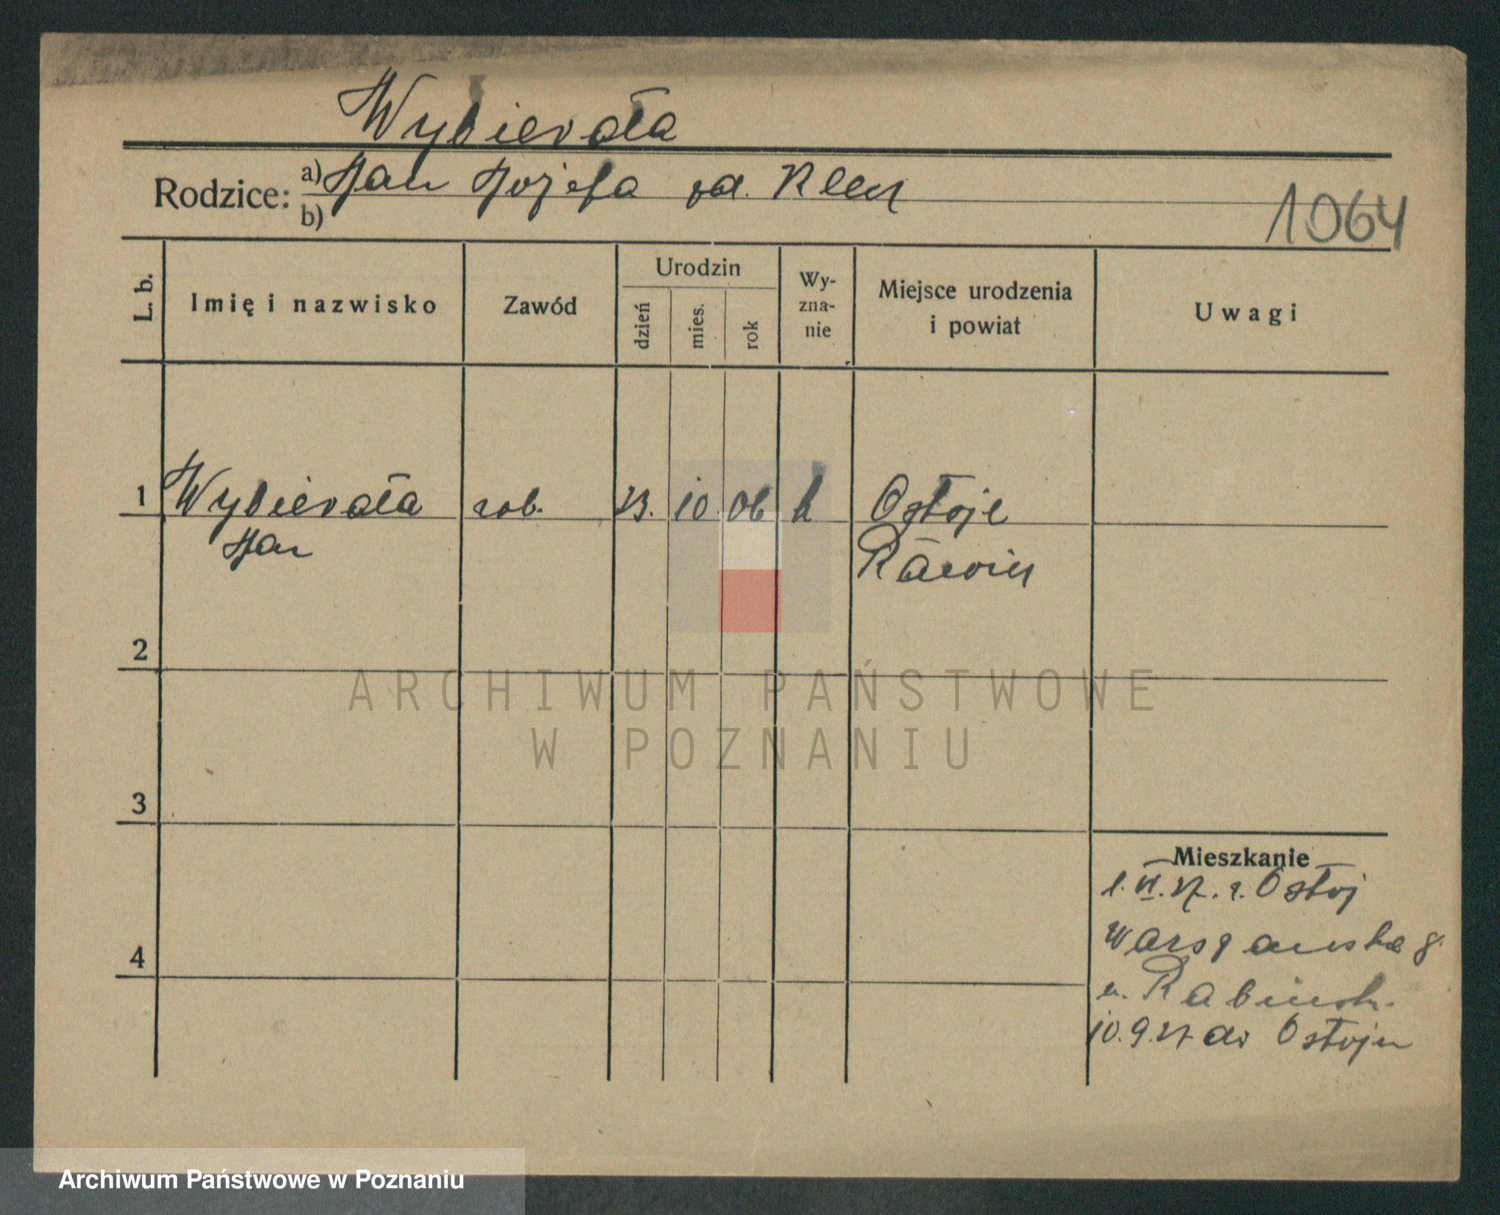 Wybierała
Rodzice: a) Jan Józefa zd. Klem
b)
1064
L. b.
Imię i nazwisko
Zawód
Urodzin
dzień
mies.
rok
Wy-
zna-
nie
Miejsce urodzenia
i powiat
Uwagi
1 Wybierała rob. 23. 10 06 k Ostoje
Jan Rawicz
2
ARCHIWUM PAŃSTWOWE
W POZNANIU
3
Mieszkanie
1. VI. 27. z. Ostoj
Warszawska 8.
u. Rabinek.
4
10. 9. 27 do Ostoju
Archiwum Państwowe w Poznaniu